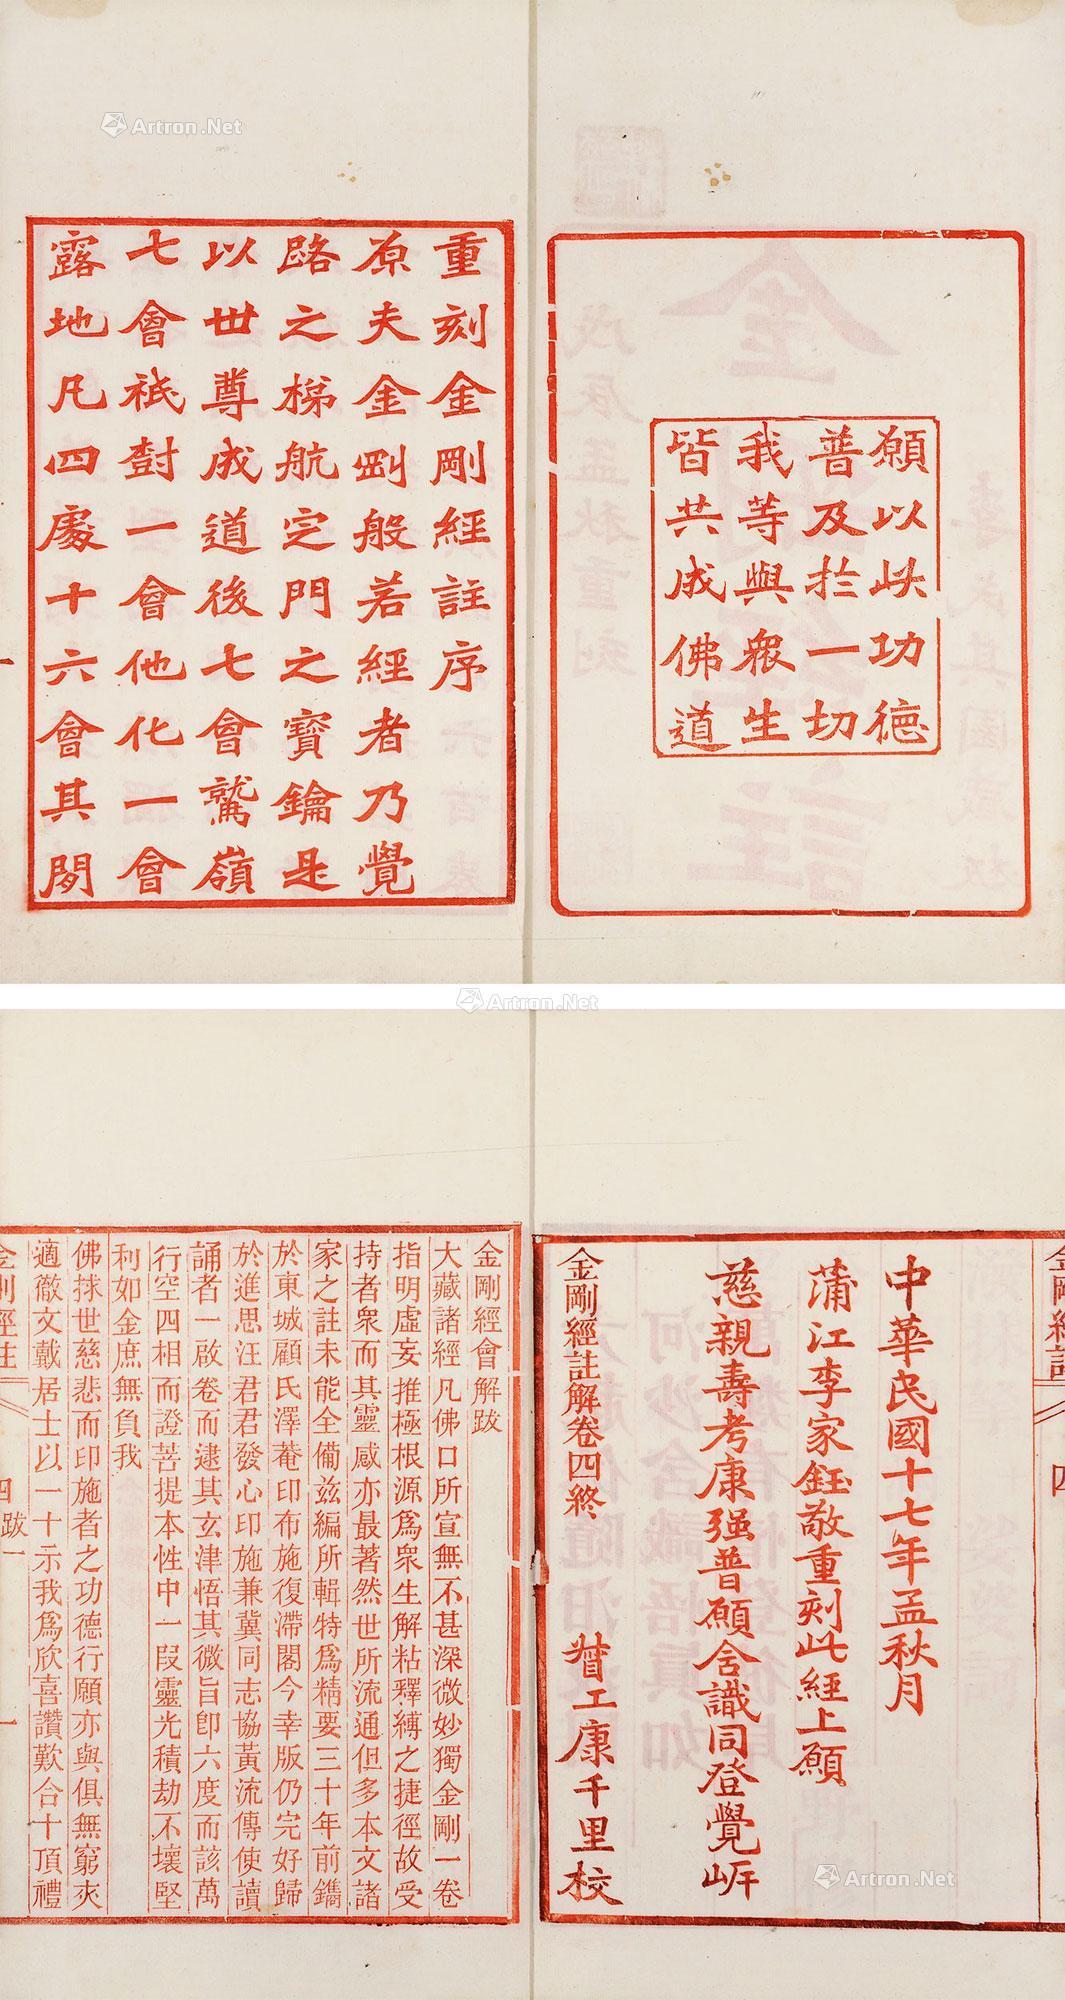 願以此功德
普及於一切
我等與衆生
皆共成佛道
重刻金剛經註序
原夫金剛般若經者乃覺
路之梯航定門之寶鑰是
以世尊成道後七會鷲嶺
七會祇對一會他化一會
露地凡四處十六會其間
Artron.Net
Artron.Net
金剛經註
四
中華民國十七年孟秋月
蒲江李家鈺敬重刻此經上願
慈親壽考康强普願含識同登覺岍
金剛經註解卷四終
督工康千里校
金剛經會解跋
大藏諸經凡佛口所宣無不甚深微妙獨金剛一卷
指明虛妄推極根源爲衆生解粘釋縛之捷徑故受
持者衆而其靈感亦最著然世所流通但多本文諸
家之註未能全備兹編所輯特爲精要三十年前鐫
於東城顧氏澤菴印布施復滯閣今幸版仍完好歸
於進思汪君君發心印施兼冀同志協黃流傳使讀
誦者一啟卷而逮其玄津悟其微旨卽六度而該萬
行空四相而證菩提本性中一段靈光積劫不壞堅
利如金庶無負我
佛捄世慈悲而印施者之功德行願亦與俱無窮矣
適徹文戴居士以一十示我爲欣喜讚歎合十頂禮
金剛經註
四
跋一
一
Artron.Net